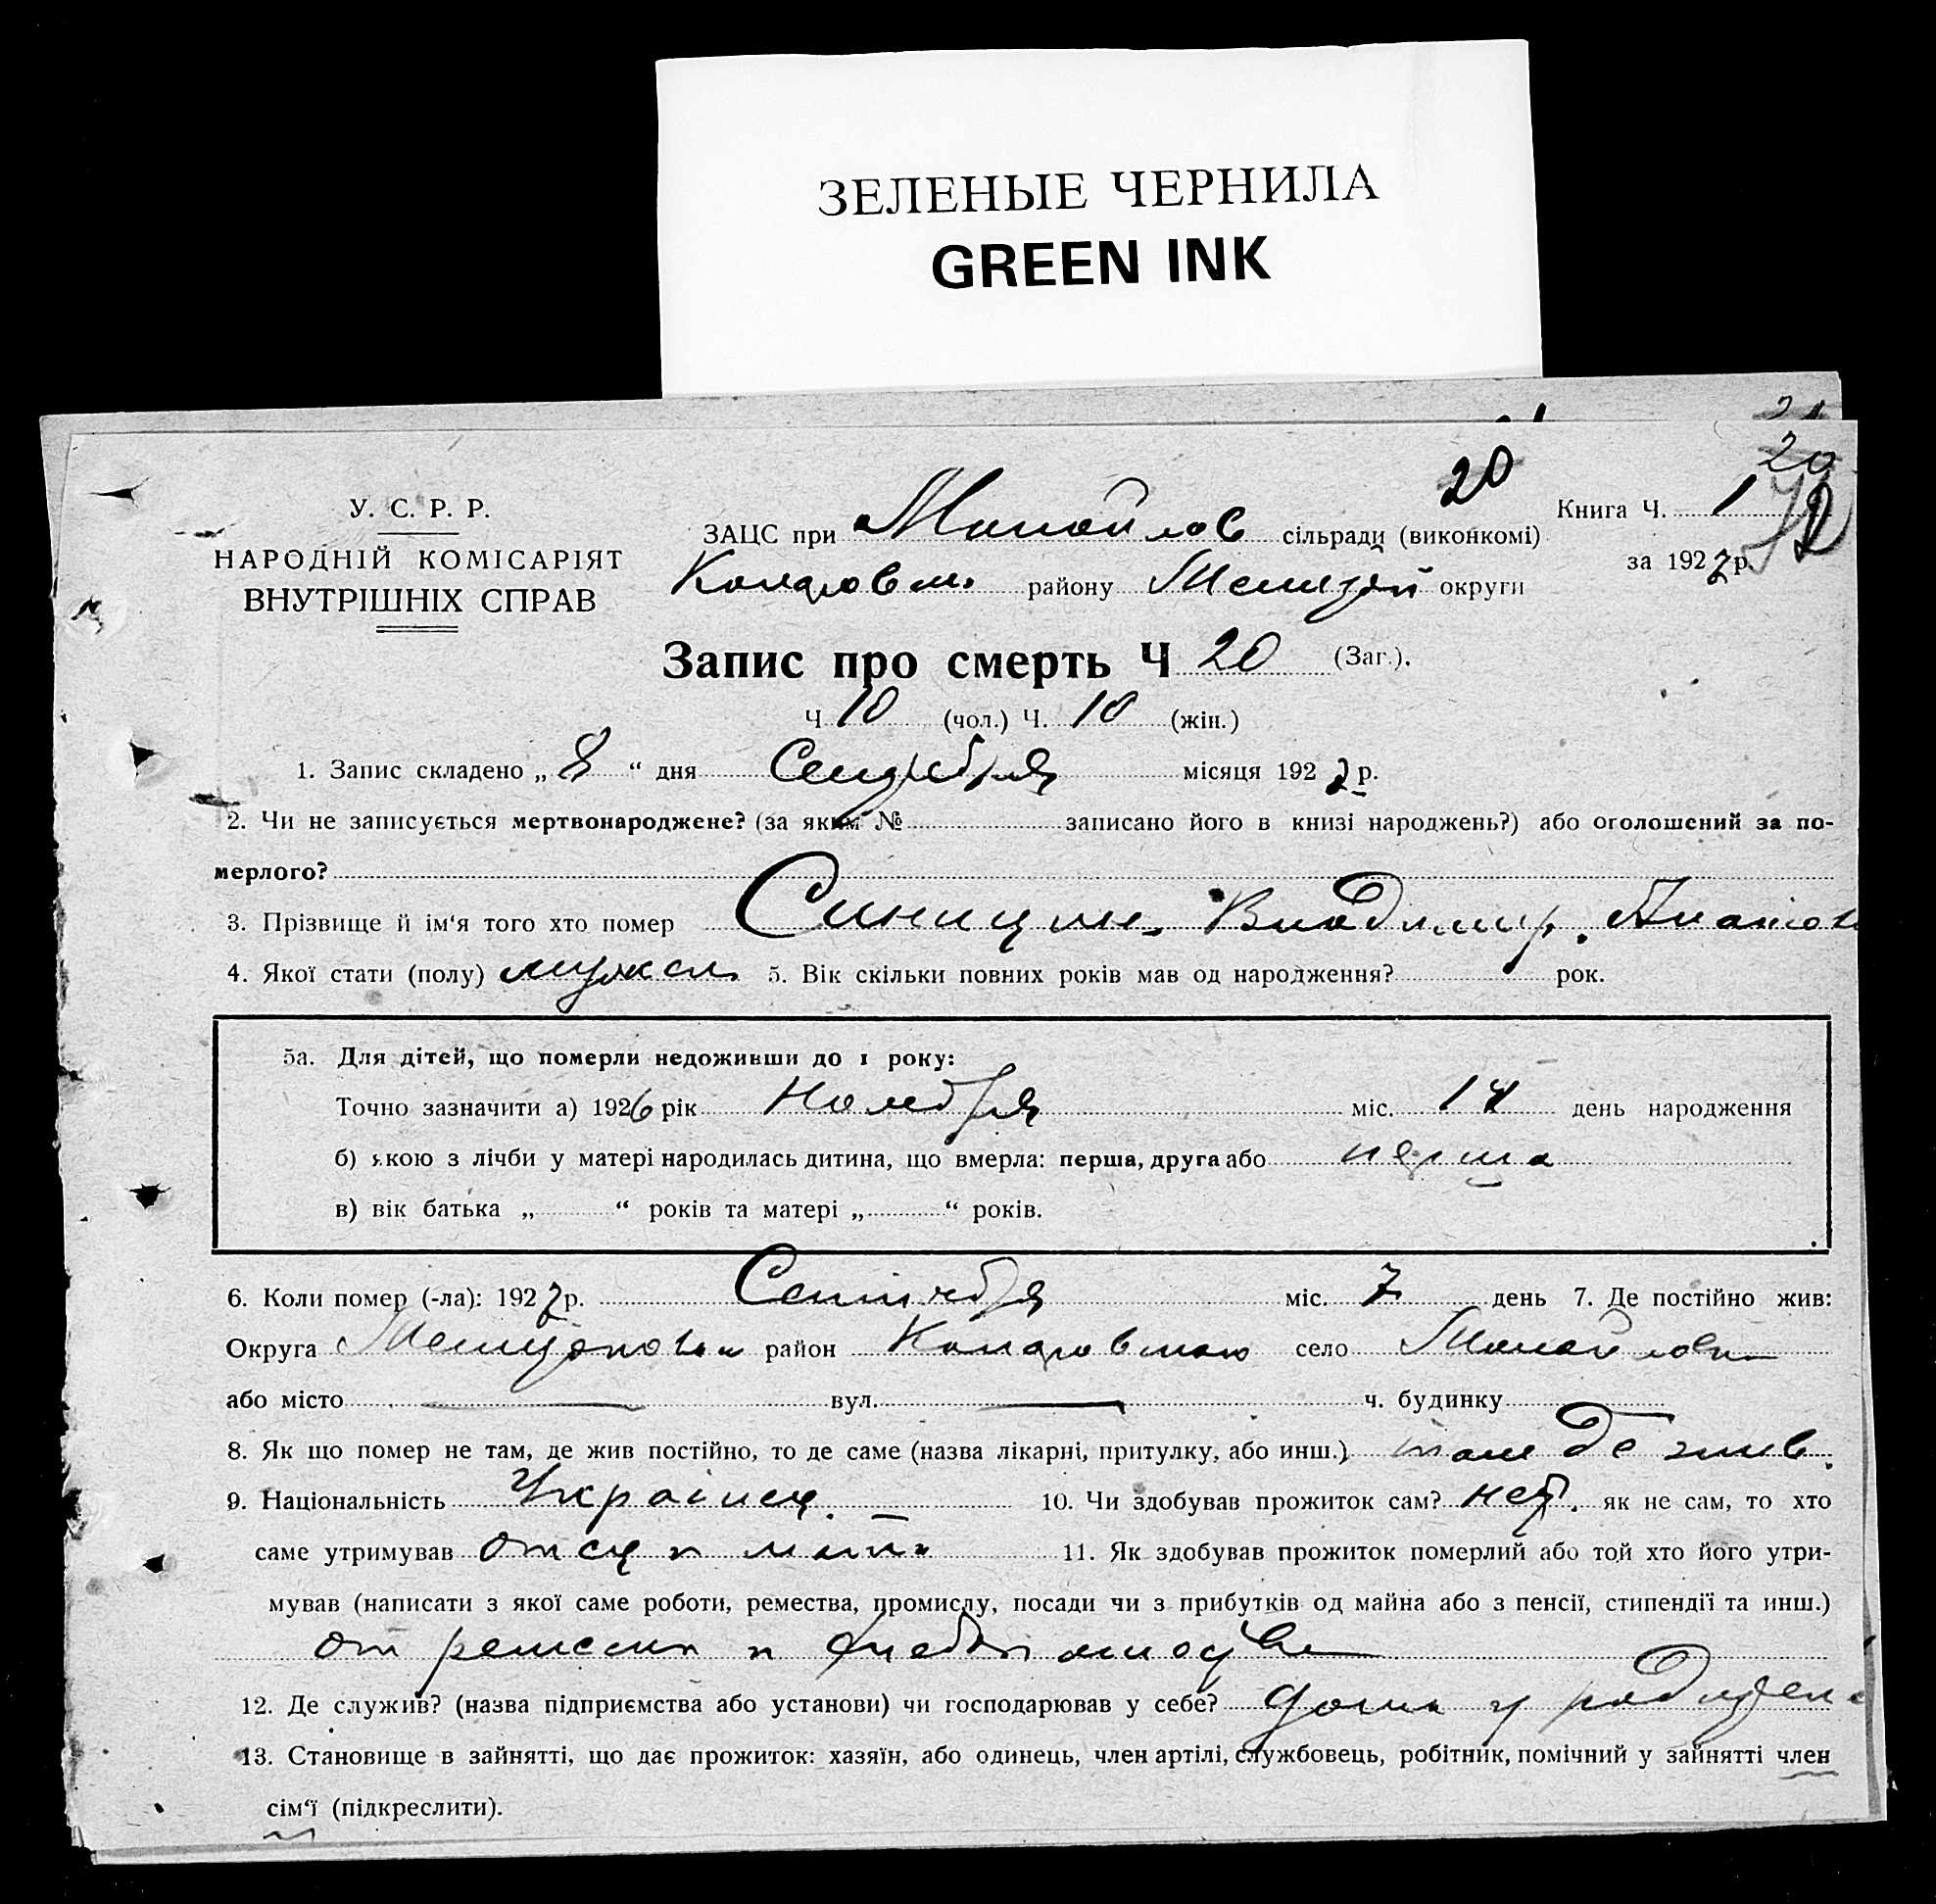 ЗЕЛЕНЫЕ ЧЕРНИЛА
GREEN INK
20
20
У. С. Р. Р.
НАРОДНІЙ КОМІСАРІЯТ
ВНУТРІШНІХ СПРАВ
ЗАЦС при сільради (виконкомі)
району округи
Книга Ч. 1
за 1927 р.
Запис про смерть Ч 20 (Заг.).
Ч 10 (чол.) Ч. 10 (жін.)
1. Запис складено „ 8 “ дня Сентября місяця 1927 р.
2. Чи не записується мертвонароджене? (за яким № записано його в книзі народжень?) або оголошений за по-
мерлого?
3. Прізвище й ім‘я того хто помер Синицин Владимир
4. Якої стати (полу) 5. Вік скільки повних років мав од народження? рок.
5а. Для дітей, що померли недоживши до 1 року:
Точно зазначити а) 1926 рік Ноября міс. день народження
б) якою з лічби у матері народилась дитина, що вмерла: перша, друга або перша
в) вік батька „ “ років та матері „ “ років.
6. Коли помер (-ла): 1927 р. Сентября міс. 7 день 7. Де постійно жив:
Округа район село
або місто вул. ч. будинку
8. Як що помер не там, де жив постійно, то де саме (назва лікарні, притулку, або инш.) там де жив
9. Національність Украінец 10. Чи здобував прожиток сам? нет. як не сам, то хто
саме утримував отец и мать 11. Як здобував прожиток померлий або той хто його утри-
мував (написати з якої саме роботи, ремества, промислу, посади чи з прибутків од майна або з пенсії, стипендії та инш.)
от ремесла и хлебопашества
12. Де служив? (назва підприємства або установи) чи господарював у себе? дома у
13. Становище в зайнятті, що дає прожиток: хазяїн, або одинець, член артілі, службовець, робітник, помічний у зайнятті член
сім‘ї (підкреслити).